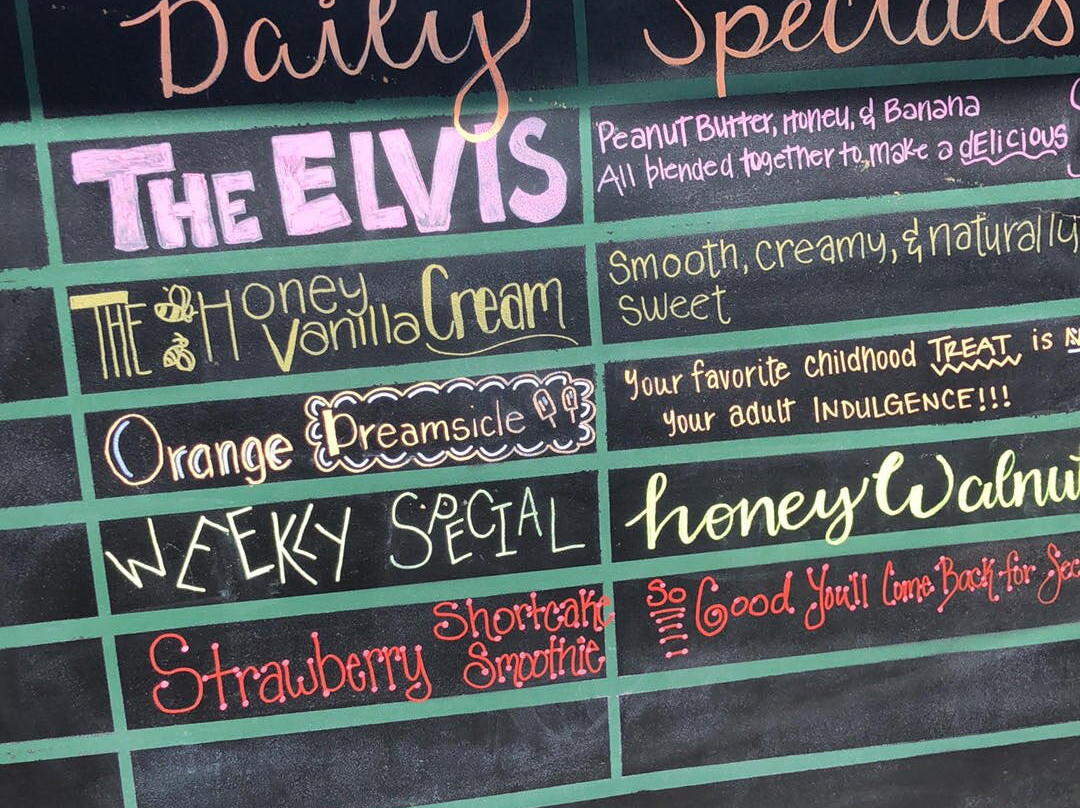 Daily Specials
THE ELVIS
Peanut Butter, Honey, & Banana
All blended together to make a dElicious
THE Honey Vanilla Cream
Smooth, creamy, & naturally
sweet
Orange Dreamsicle
Your favorite childhood TREAT is
your adult INDULGENCE!!!
WEEKLY SPECIAL
honey Walnut
Strawberry Shortcake Smoothie
So Good You'll Come Back for